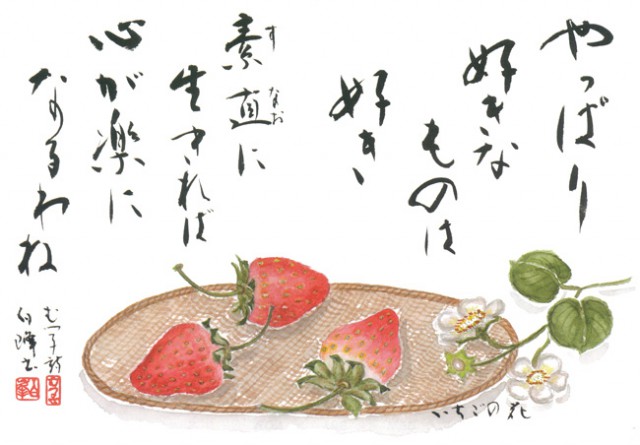 やっぱり
好きな
ものは
好き
素直に
すなお
生きれば
心が楽に
なるわね
むつ子詩
いちごの花